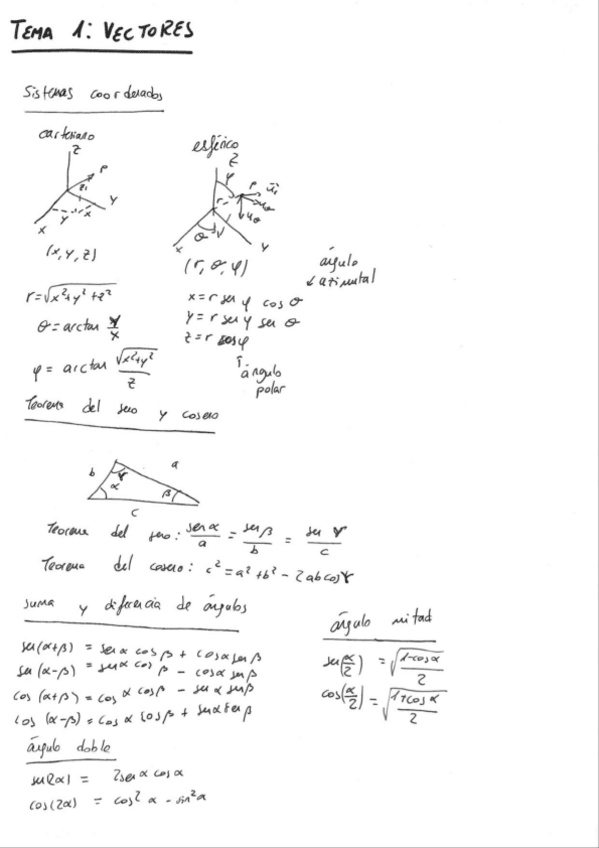 TEMA 1: VECTORES
Sistemas coordenados
cartesiano
z
P
z
y
x
y
x
(x, y, z)
esférico
z
φ
P
r
θ
x
y
(r, θ, φ)
r = √(x²+y²+z²)
θ = arctan y/x
φ = arctan √(x²+y²)/z
x = r sen φ cos θ
y = r sen φ sen θ
z = r cos φ
ángulo
↙ azimutal
↑
ángulo
polar
Teorema del seno y coseno
b
γ
a
α
β
c
Teorema del seno: sen α/a = sen β/b = sen γ/c
Teorema del coseno: c² = a² + b² - 2ab cos γ
suma y diferencia de ángulos
sen(α+β) = sen α cos β + cos α sen β
sen(α-β) = sen α cos β - cos α sen β
cos(α+β) = cos α cos β - sen α sen β
cos(α-β) = cos α cos β + sen α sen β
ángulo mitad
sen(α/2) = √((1-cos α)/2)
cos(α/2) = √((1+cos α)/2)
ángulo doble
sen(2α) = 2 sen α cos α
cos(2α) = cos² α - sin² α